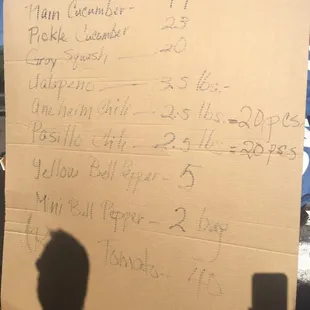 Main Cucumber -
Pickle Cucumber 23
Gray Squash - 20
Jalapeno - 3.5 lbs.-
Aneheim Chili - 2.5 lbs. = 20 pcs.
Pasillo Chili - 2.5 lbs = 20 pcs
Yellow Bell Pepper - 5
Mini Bell Pepper - 2 bag
Tomato - 48